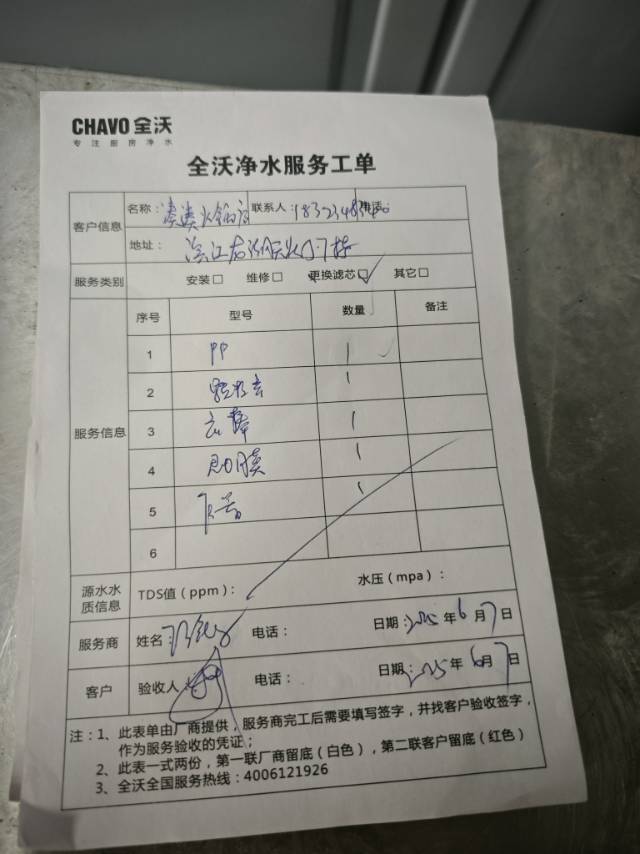 CHAVO 全沃
专注厨房净水
全沃净水服务工单
客户信息 名称： 火锅店 联系人：
电话：
地址：
服务类别 安装□ 维修□ 更换滤芯☑ 其它□
服务信息 序号 型号 数量 备注
1 PP 1
2 1
3 1
4 RO膜 1
5 1
6
源水水质信息 TDS值（ppm）： 水压（mpa）：
服务商 姓名 电话： 日期：2025年6月7日
客户 验收人 电话： 日期：2025年6月7日
注：1、此表单由厂商提供，服务商完工后需要填写签字，并找客户验收签字，
作为服务验收的凭证；
2、此表一式两份，第一联厂商留底（白色），第二联客户留底（红色）
3、全沃全国服务热线：4006121926